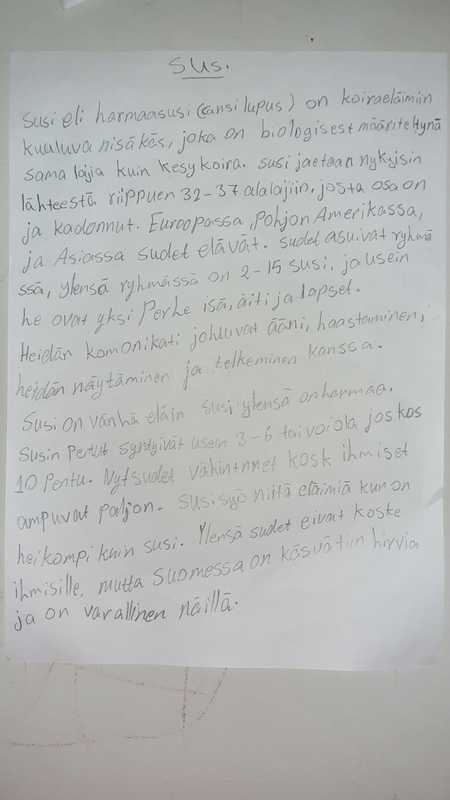 SUSi.
Susi eli harmaasusi (cansi lupus) on koiraeläimiin
kuuluva nisäkäs, joka on biologisest määriteltynä
sama laija kuin kesykoira. susi jaetaan nykyisin
lähteestä riippuen 32-37 alalajiin, josta osa on
ja kadonnut. Euroopassa, Pohjon Amerikassa,
ja Asiassa sudet elävät. sudet asuivat ryhmä
ssä, ylensä ryhmässä on 2-15 susi, ja usein
he ovat yksi Perhe isä, äiti ja lapset.
Heidän komonikati johluvat ääni, haastaminen,
heidän näytäminen ja telkeminen kanssa.
Susi on vanhä eläin susi ylensä on harmaa.
Susin Pentut syntyivät usein 3-6 tai voi ola jos kos
10 Pentu. Nyt sudet vähintnnet kosk ihmiset
ampuvat paljon. Susi syö niitä eläimiä kun on
heikompi kuin susi. Ylensä sudet eivat koske
ihmisille, mutta Suomessa on käsvätiin hirvia
ja on varallinen näillä.